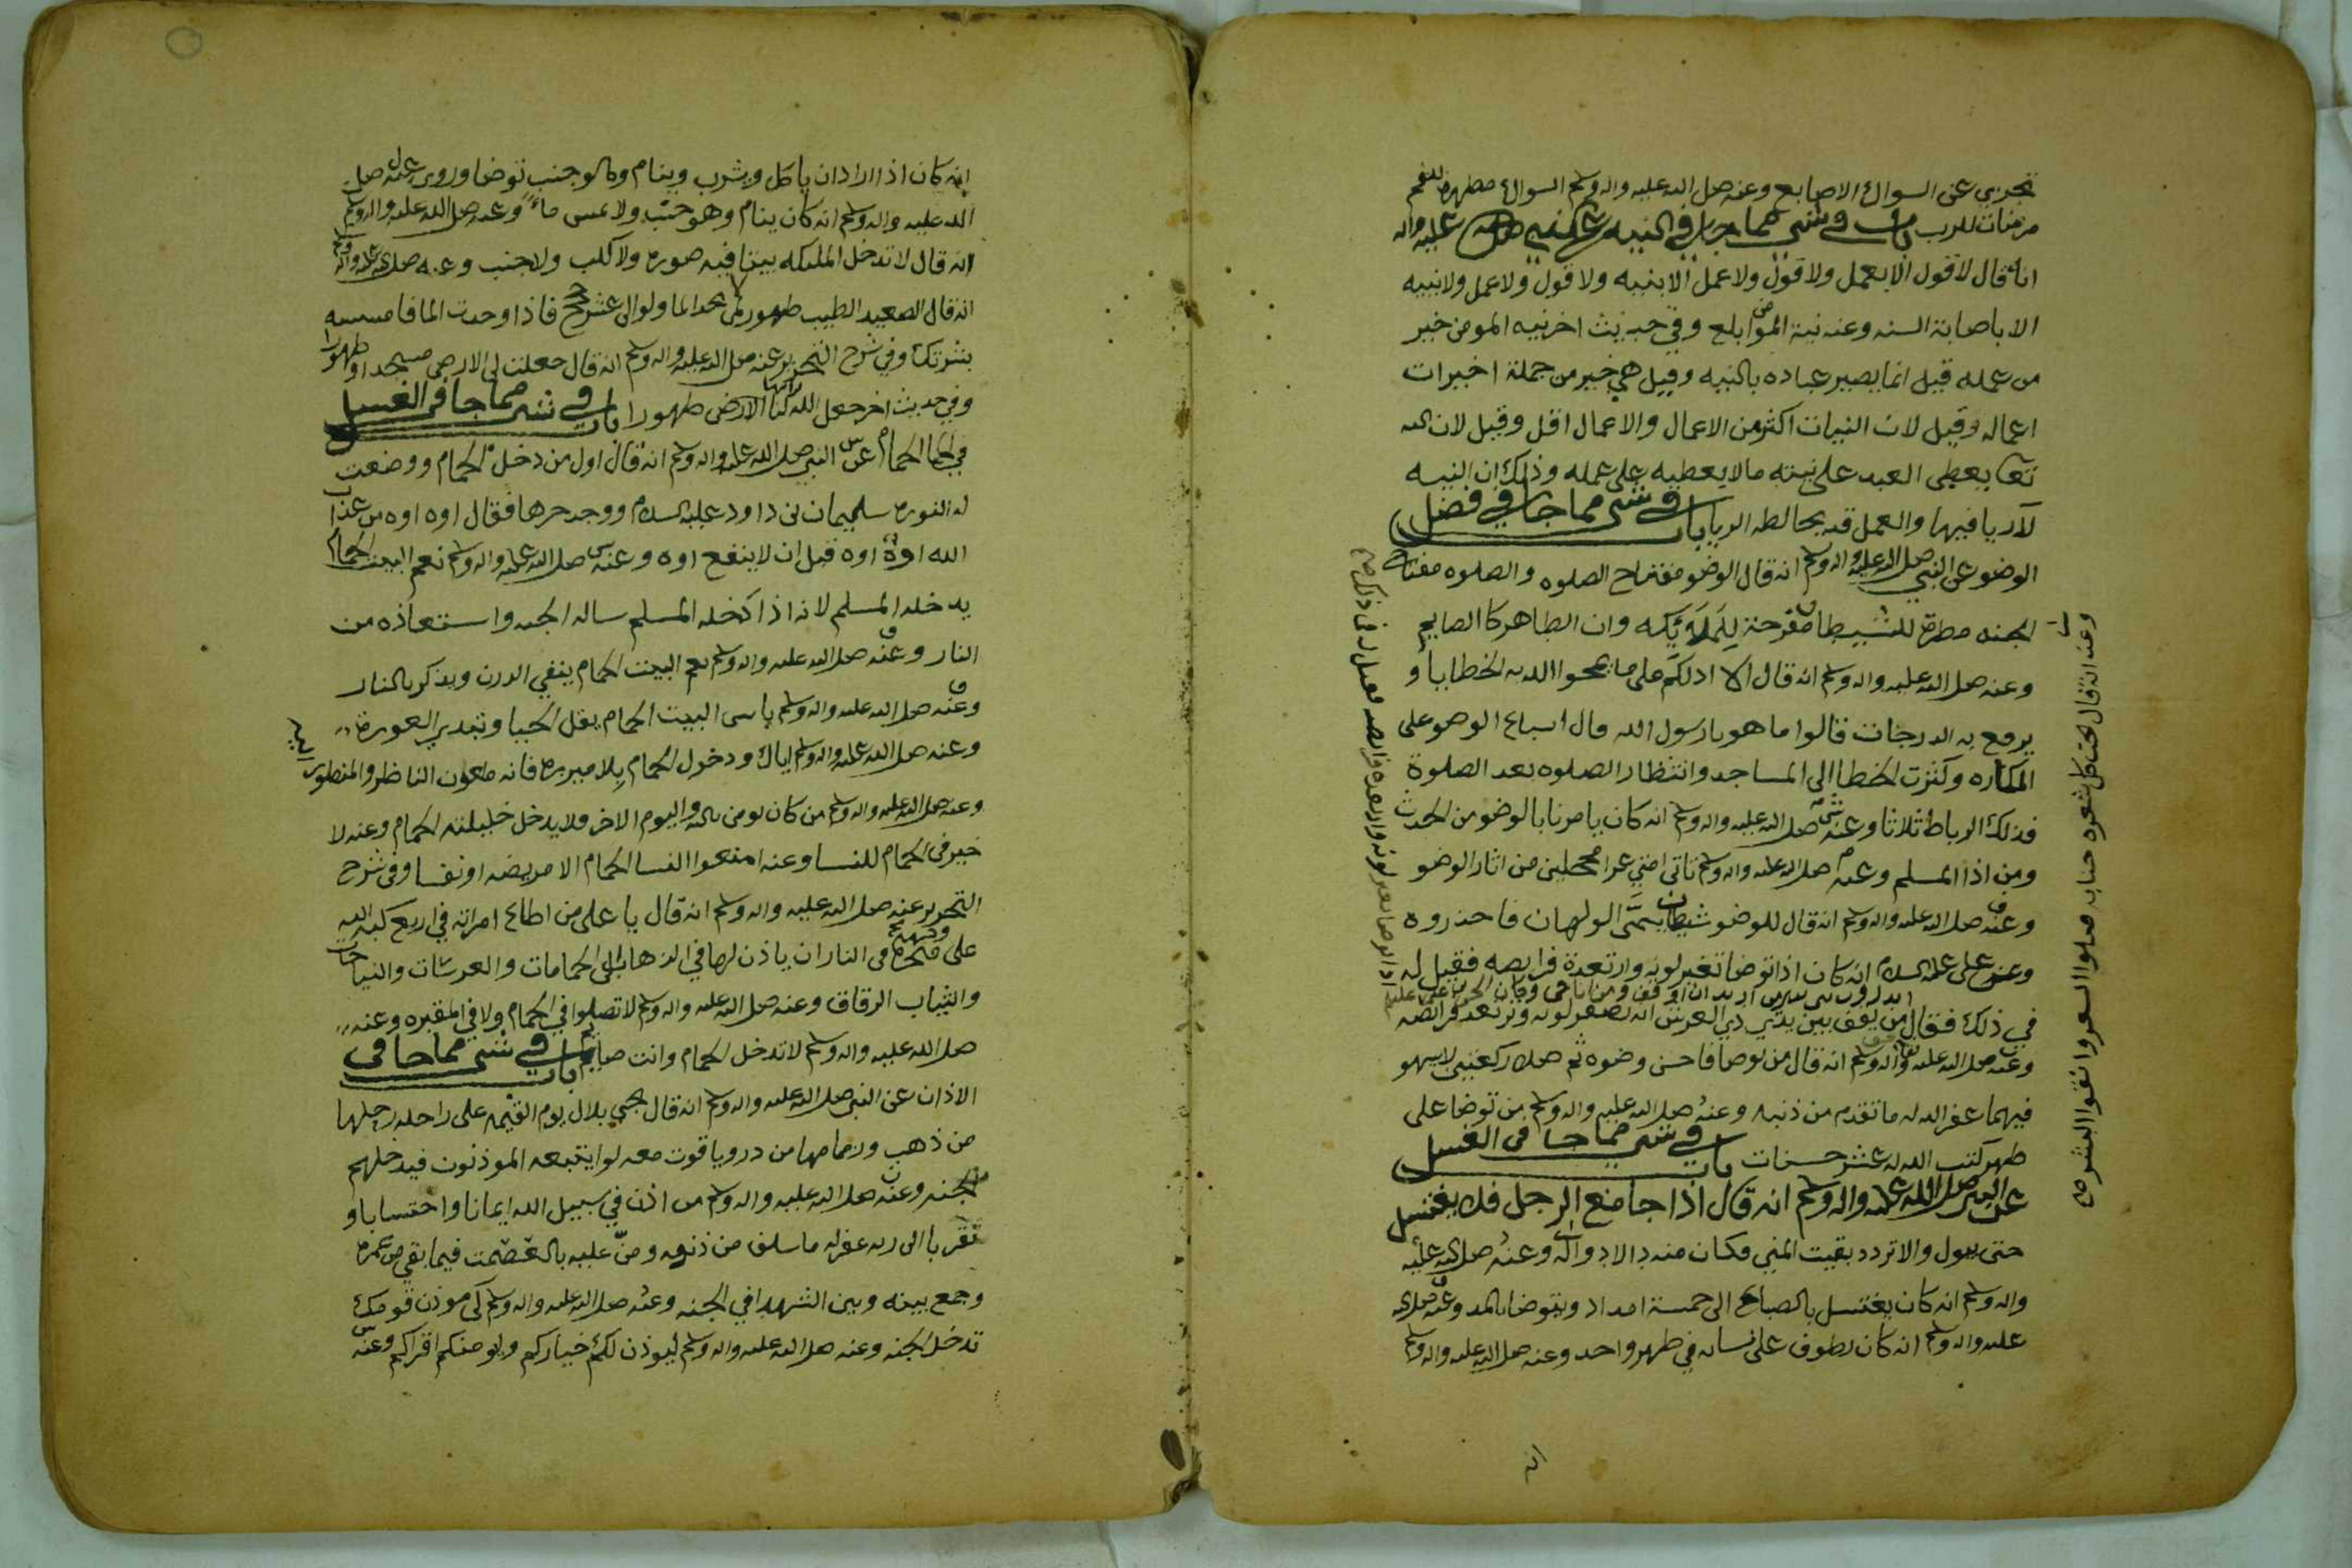 تجزي عن السواك الاصابع وعنه صلى الله عليه واله وسلم السواك مطهرة للفم
مرضات للرب باب في شي مما جا في النيه عن النبي صلى الله عليه واله
انه قال لا قول الا بعمل ولا قول ولا عمل الا بنيه ولا قول ولا عمل ولا نييه
الا باصابة السنه وعنه نية المومن ابلع وفي حديث اخر نيه المومن خير
من عمله قيل انما يصير عباده بالنيه وقيل هي خير من جملة اخيرات
اعماله وقيل لان النيات اكثر من الاعمال والاعمال اقل وقيل لان الله
تعا يعطي العبد على نيته مالا يعطيه على عمله وذلك ان النيه
لا ريا فيها والعمل قد يخالطه الريا باب في شي مما جا في فضل
الوضو عن النبي صلى الله عليه واله وسلم انه قال الوضو مفتاح الصلوه والصلوه مفتاح
الجنه مطرده للشيطان مفرحة للملايكه وان الطاهر كالصايم
وعنه صلى الله عليه واله وسلم انه قال الا ادلكم على ما يمحوا الله به الخطايا و
يرفع به الدرجات قالوا ما هو يا رسول الله قال اسباع الوضو على
المكاره وكثرت الخطا الى المساجد وانتظار الصلوه بعد الصلوة
فذلك الرباط ثلاثا وعنه صلى الله عليه واله وسلم انه كان يامرنا بالوضو من الحدث
ومن اذا المسلم وعنه صلى الله عليه واله وسلم تاتي امتي غرا محجلين من اثار الوضو
وعنه صلى الله عليه واله وسلم انه قال للوضو شيطان يسمى الولهان فاحذروه
وعن علي عليه السلام انه كان اذا توضا تغير لونه وارتعدة فرايصه فقيل له
في ذلك فقال من يقف بين يدي ذي العرش انه يصفر لونه وترتعد فرايصه
وعنه صلى الله عليه واله وسلم انه قال من توضا فاحسن وضوه ثم صلا ركعتين لا يسهو
فيهما غفر الله له ما تقدم من ذنبه وعنه صلى الله عليه واله وسلم من توضا على
طهر كتب الله له عشر حسنات باب في شي مما جا في الغسل
عن النبي صلى الله عليه واله وسلم انه قال اذا جامع الرجل فلا يغتسل
حتى يبول والا تردد بقيت المني فكان منه دا لا دوا له وعنه صلى الله عليه
واله وسلم انه كان يغتسل بالصاع الى خمسة امداد ويتوضا بالمد وعنه صلى الله
عليه واله وسلم انه كان يطوف على نسائه في طهر واحد وعنه صلى الله عليه واله وسلم
انه
وعنه انه قال تحت كل شعره جنابه فبلوا الشعر وانقوا البشر صح
انه كان اذا اراد ان ياكل ويشرب وينام وهو جنب توضا وروي عنه صلى
الله عليه واله وسلم انه كان ينام وهو جنب ولا يمس ماء وعنه صلى الله عليه واله وسلم
انه قال لا تدخل الملئكه بيتا فيه صوره ولا كلب ولا جنب وعنه صلى الله عليه واله وسلم
انه قال الصعيد الطيب طهور لمن لم يجد الما ولو الى عشر حجج فاذا وجدت الما فامسسه
بشرتك وفي شرح التحرير عنه صلى الله عليه واله وسلم انه قال جعلت لي الارض مسجدا وطهورا
وفي حديث اخر جعل الله لنا الارض طهورا باب في شي مما جا في الغسل
في الحمام عن النبي صلى الله عليه واله وسلم انه قال اول من دخل الحمام ووضعت
له النوره سليمان بن داود عليه السلام ووجد حرها فقال اوه اوه من عذاب
الله اوة اوه قبل ان لا ينفع اوه وعنه صلى الله عليه واله وسلم نعم البيت الحمام
يدخله المسلم لانه اذا دخله المسلم ساله الجنه واستعاذه من
النار وعنه صلى الله عليه واله وسلم نعم البيت الحمام ينقي الدرن ويذكر بالنار
وعنه صلى الله عليه واله وسلم باس البيت الحمام يقل الحيا وتبدير العورة
وعنه صلى الله عليه واله وسلم اياك ودخول الحمام بلا ميزره فانه ملعون الناظر والمنظور
وعنه صلى الله عليه واله وسلم من كان يومن بالله واليوم الاخر فلا يدخل حليلته الحمام وعنه لا
خير في الحمام للنسا وعنه امنعوا النسا الحمام الا مريضه او نفسا وفي شرح
التحرير عنه صلى الله عليه واله وسلم انه قال يا علي من اطاع امراته في اربع كبه الله
على منخره في النار ان ياذن لها في الذهاب الى الحمامات والعرسات والنياحات
والثياب الرقاق وعنه صلى الله عليه واله وسلم لا تصلوا في الحمام ولا في المقبره وعنه
صلى الله عليه واله وسلم لا تدخل الحمام وانت صايم باب في شي مما جا في
الاذان عن النبي صلى الله عليه واله وسلم انه قال يجي بلال يوم القيمه على راحله رحلها
من ذهب وزمامها من در وياقوت معه لوا يتبعه الموذنون فيدخلهم
الجنه وعنه صلى الله عليه واله وسلم من اذن في سبيل الله ايمانا واحتسابا و
تقربا الى ربه غفر له ما سلف من ذنوبه ومنّ عليه بالعصمت فيما بقي من عمره
وجمع بينه وبين الشهدا في الجنه وعنه صلى الله عليه واله وسلم كن موذن قومك
تدخل الجنه وعنه صلى الله عليه واله وسلم ليوذن لكم خياركم ويومنكم اقراكم وعنه